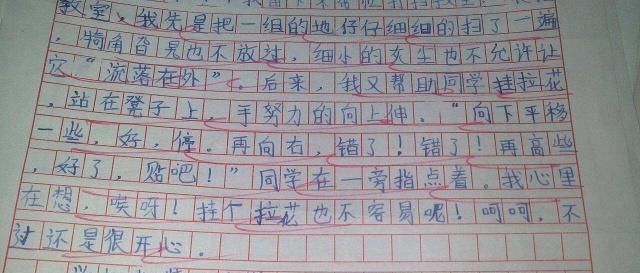 教室，我先是把一组的地仔仔细细的扫了一遍
，犄角旮旯也不放过，细小的灰尘也不允许让
它“流落在外”。后来，我又帮助同学挂拉花
，站在凳子上，手努力的向上伸。“向下平移
一些，好，停。再向右，错了！错了！再高些
，好了，贴吧！”同学在一旁指点着。我心里
在想，唉呀！挂个拉花也不容易呢！呵呵，不
过还是很开心。